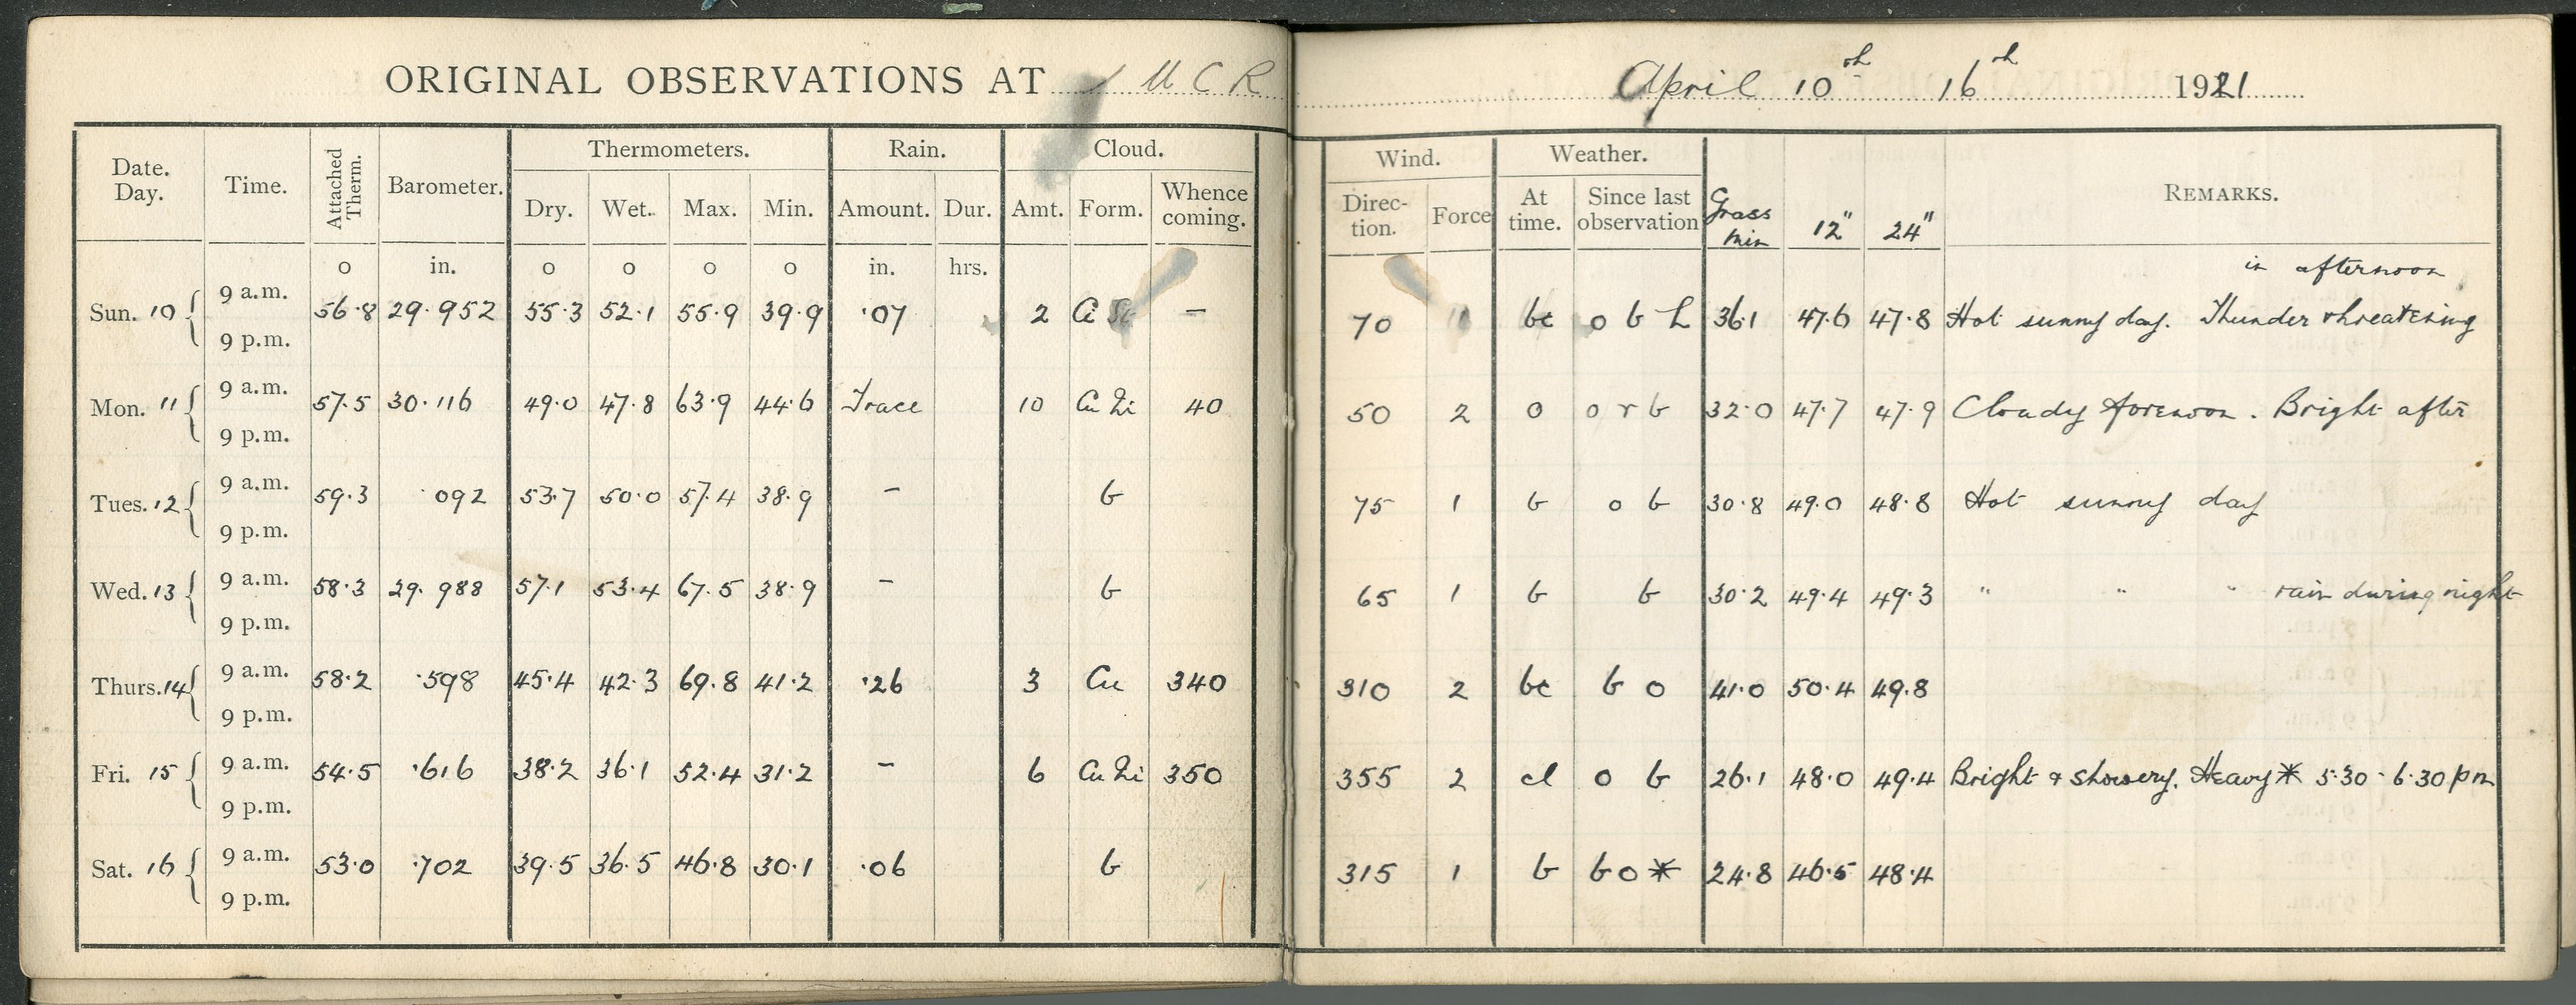 ORIGINAL OBSERVATIONS AT M C R April 10th 16th 1921
Date. Day. Time. Attached Therm. Barometer. Thermometers. Rain. Cloud. Wind. Weather. Grass min 12" 24" REMARKS.
Dry. Wet. Max. Min. Amount. Dur. Amt. Form. Whence coming. Direc-tion. Force At time. Since last observation
o in. o o o o in. hrs.
in afternoon
Sun. 10 9 a.m. 56.8 29.952 55.3 52.1 55.9 39.9 .07 2 Ci – 70 bc o b h 36.1 47.6 47.8 Hot sunny day. Thunder threatening
9 p.m.
Mon. 11 9 a.m. 57.5 30.116 49.0 47.8 63.9 44.6 Trace 10 Cu Ni 40 50 2 o o r b 32.0 47.7 47.9 Cloudy forenoon. Bright after
9 p.m.
Tues. 12 9 a.m. 59.3 .092 53.7 50.0 57.4 38.9 – b 75 1 b o b 30.8 49.0 48.8 Hot sunny day
9 p.m.
Wed. 13 9 a.m. 58.3 29.988 57.1 53.4 67.5 38.9 – b 65 1 b b 30.2 49.4 49.3 " " " rain during night
9 p.m.
Thurs. 14 9 a.m. 58.2 .598 45.4 42.3 69.8 41.2 .26 3 Cu 340 310 2 bc b o 41.0 50.4 49.8
9 p.m.
Fri. 15 9 a.m. 54.5 .616 38.2 36.1 52.4 31.2 – 6 Cu Ni 350 355 2 cl o b 26.1 48.0 49.4 Bright & showery. Heavy * 5.30 - 6.30 pm
9 p.m.
Sat. 16 9 a.m. 53.0 .702 39.5 36.5 46.8 30.1 .06 b 315 1 b b o * 24.8 46.5 48.4
9 p.m.